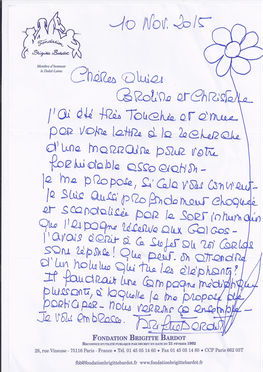 Fondation
Brigitte Bardot
Membre d'honneur
le Dalaï-Lama
10 Nov. 2015
Chères Amies
Caroline et Christelle
J'ai été très Touchée et émue
par votre lettre à la recherche
d'une marraine pour votre
formidable association -
Je me propose, si cela vous convient -
Je suis aussi profondément choquée
et scandalisée par le sort inhumain
que l'Espagne réserve aux Galgos -
J'avais écrit à ce sujet au roi Carlos
sans réponse! Que peut-on attendre
d'un homme qui tue les éléphants?
Il faudrait une campagne médiatique
puissante, à laquelle je me propose de
participer - nous verrons ça ensemble -
Je vous embrasse. Brigitte Bardot
FONDATION BRIGITTE BARDOT
RECONNUE D'UTILITÉ PUBLIQUE PAR DÉCRET EN DATE DU 21 FÉVRIER 1992
28, rue Vineuse - 75116 Paris - France • Tél. 01 45 05 14 60 • Fax 01 45 05 14 80 • CCP Paris 662 02T
fbb@fondationbrigittebardot.fr www.fondationbrigittebardot.fr